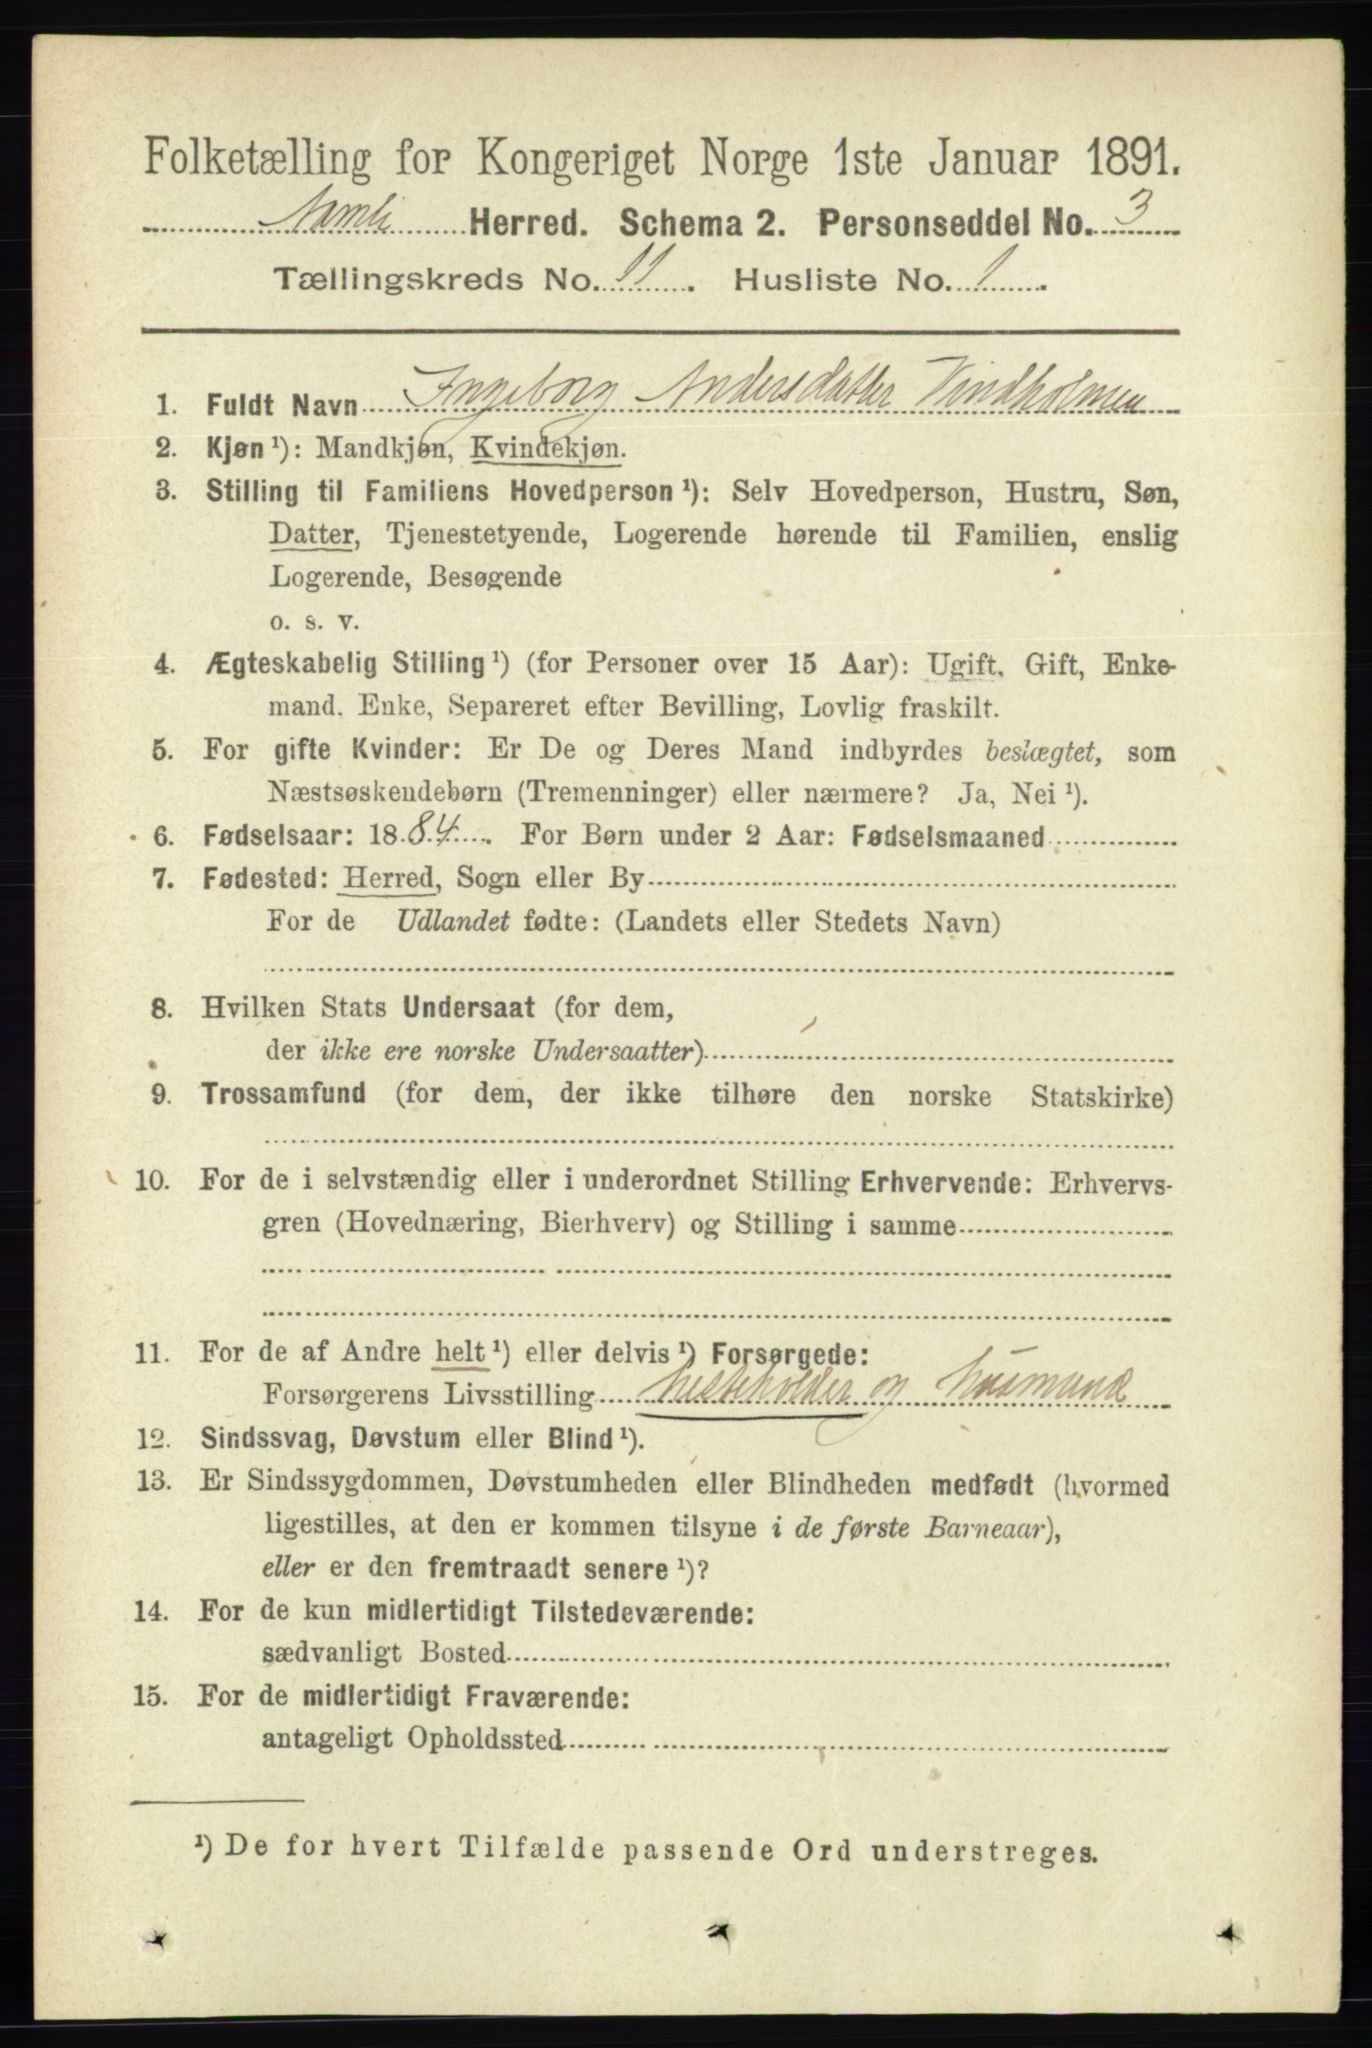 Folketælling for Kongeriget Norge 1ste Januar 1891.
Aamli Herred. Schema 2. Personseddel No. 3
Tællingskreds No. 11. Husliste No. 1.
1. Fuldt Navn Ingeborg Andersdatter Vindholmen
2. Kjøn ¹): Mandkjøn, Kvindekjøn.
3. Stilling til Familiens Hovedperson ¹): Selv Hovedperson, Hustru, Søn,
Datter, Tjenestetyende, Logerende hørende til Familien, enslig
Logerende, Besøgende
o. s. v.
4. Ægteskabelig Stilling ¹) (for Personer over 15 Aar): Ugift, Gift, Enke-
mand. Enke, Separeret efter Bevilling, Lovlig fraskilt.
5. For gifte Kvinder: Er De og Deres Mand indbyrdes beslægtet, som
Næstsøskendebørn (Tremenninger) eller nærmere? Ja, Nei ¹).
6. Fødselsaar: 1884. For Børn under 2 Aar: Fødselsmaaned
7. Fødested: Herred, Sogn eller By
For de Udlandet fødte: (Landets eller Stedets Navn)
8. Hvilken Stats Undersaat (for dem,
der ikke ere norske Undersaatter)
9. Trossamfund (for dem, der ikke tilhøre den norske Statskirke)
10. For de i selvstændig eller i underordnet Stilling Erhvervende: Erhvervs-
gren (Hovednæring, Bierhverv) og Stilling i samme
11. For de af Andre helt ¹) eller delvis ¹) Forsørgede:
Forsørgerens Livsstilling hesteholder og husmand
12. Sindssvag, Døvstum eller Blind ¹).
13. Er Sindssygdommen, Døvstumheden eller Blindheden medfødt (hvormed
ligestilles, at den er kommen tilsyne i de første Barneaar),
eller er den fremtraadt senere ¹)?
14. For de kun midlertidigt Tilstedeværende:
sædvanligt Bosted
15. For de midlertidigt Fraværende:
antageligt Opholdssted
¹) De for hvert Tilfælde passende Ord understreges.